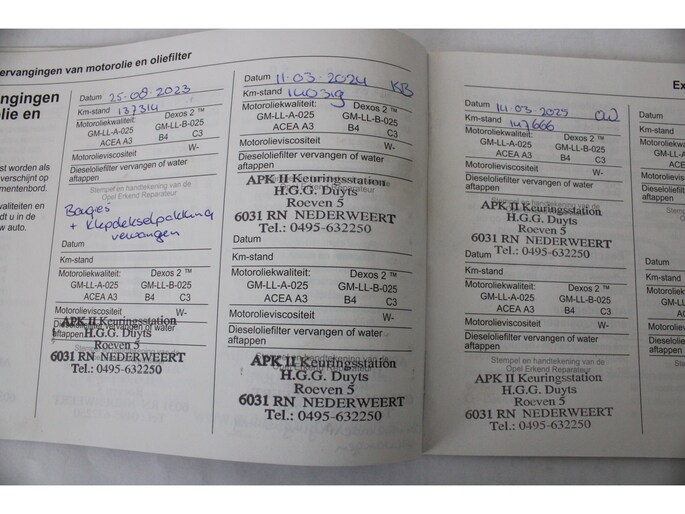 ervangingen van motorolie en oliefilter
ngingen
lie en
st worden als
verschijnt op
mentenbord.
valiteiten en
dt u in de
w auto.
Datum 25-08-2023
Km-stand 137314
Motoroliekwaliteit: Dexos 2 ™
GM-LL-A-025 GM-LL-B-025
ACEA A3 B4 C3
Motorolieviscositeit W-
Dieseloliefilter vervangen of water
aftappen
Stempel en handtekening van de
Opel Erkend Reparateur
Bougies
+ Klepdekselpakking
vervangen
Datum
Km-stand
Motoroliekwaliteit: Dexos 2 ™
GM-LL-A-025 GM-LL-B-025
ACEA A3 B4 C3
Motorolieviscositeit W-
Dieseloliefilter vervangen of water
aftappen
APK II Keuringsstation
H.G.G. Duyts
Roeven 5
6031 RN NEDERWEERT
Tel.: 0495-632250
Datum 11-03-2024 KB
Km-stand
Motoroliekwaliteit: Dexos 2 ™
GM-LL-A-025 GM-LL-B-025
ACEA A3 B4 C3
Motorolieviscositeit W-
Dieseloliefilter vervangen of water
aftappen
APK II Keuringsstation
H.G.G. Duyts
Roeven 5
6031 RN NEDERWEERT
Tel.: 0495-632250
Datum
Km-stand
Motoroliekwaliteit: Dexos 2 ™
GM-LL-A-025 GM-LL-B-025
ACEA A3 B4 C3
Motorolieviscositeit W-
Dieseloliefilter vervangen of water
aftappen
Stempel en handtekening van de
APK II Keuringsstation
H.G.G. Duyts
Roeven 5
6031 RN NEDERWEERT
Tel.: 0495-632250
Ex
Datum 14-03-2025
Km-stand 147666
Motoroliekwaliteit: Dexos 2 ™
GM-LL-A-025 GM-LL-B-025
ACEA A3 B4 C3
Motorolieviscositeit W-
Dieseloliefilter vervangen of water
aftappen
APK II Keuringsstation
H.G.G. Duyts
Roeven 5
6031 RN NEDERWEERT
Tel.: 0495-632250
Km-stand
Motoroliekwaliteit: Dexos 2 ™
GM-LL-A-025 GM-LL-B-025
ACEA A3 B4 C3
Motorolieviscositeit W-
Dieseloliefilter vervangen of water
aftappen
Stempel en handtekening van de
Opel Erkend Reparateur
APK II Keuringsstation
H.G.G. Duyts
Roeven 5
6031 RN NEDERWEERT
Tel.: 0495-632250
Datum
Km-stand
Motoroliekw
GM-LL-A
ACEA
Motorolievis
Dieseloliefil
aftappen
Datum
Km-stand
Motoroliekw
GM-LL-
ACE
Motorolievi
Dieseloliefi
aftappen